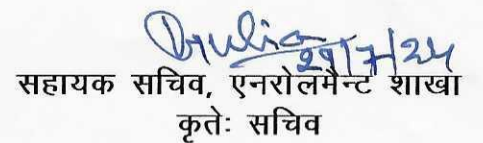 29/7/24
सहायक सचिव, एनरोलमैन्ट शाखा
कृतेः सचिव